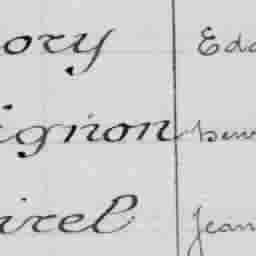 ory Edo
ignon hen
irel Jean